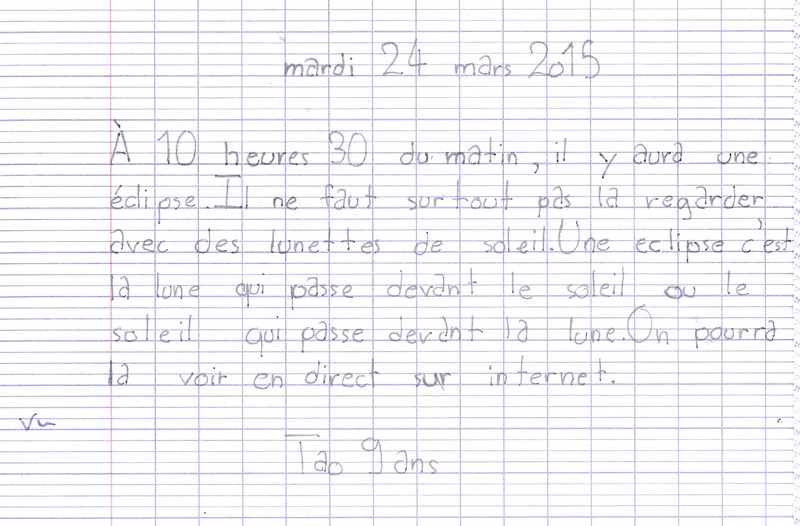 mardi 24 mars 2015
À 10 heures 30 du matin, il y aura une
éclipse. Il ne faut surtout pas la regarder
avec des lunettes de soleil. Une eclipse c'est
la lune qui passe devant le soleil ou le
soleil qui passe devant la lune. On pourra
la voir en direct sur internet.
Vu
Tao 9 ans